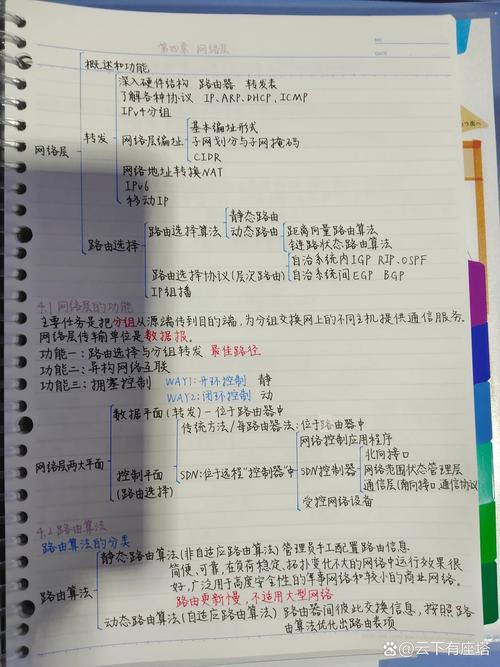 第四章 网络层
NO.
DATE
概述和功能
深入硬件结构 路由器 转发表
了解各种协议 IP、ARP、DHCP、ICMP
IPv4分组
转发
网络层编址
基本编址形式
子网划分与子网掩码
CIDR
网络层
网络地址转换NAT
IPv6
移动IP
路由选择
路由选择算法
静态路由
动态路由
距离向量路由算法
链路状态路由算法
路由选择协议(层次路由)
自治系统内IGP RIP、OSPF
自治系统间EGP BGP
IP组播
4.1 网络层的功能
主要任务是把分组从源端传到目的端,为分组交换网上的不同主机提供通信服务。
网络层传输单位是数据报。
功能一:路由选择与分组转发 最佳路径
功能二:异构网络互联
功能三:拥塞控制 WAY1:开环控制 静
WAY2:闭环控制 动
网络层两大平面
数据平面(转发)-位于路由器中
控制平面
(路由选择)
传统方法/每路由器法:位于路由器中
SDN:位于远程"控制器"中
SDN控制器
网络控制应用程序
北向接口
网络范围状态管理层
通信层(南向接口,通信协议)
受控网络设备
4.2 路由算法
路由算法的分类
路由算法
静态路由算法(非自适应路由算法) 管理员手工配置路由信息
简便、可靠,在负荷稳定、拓扑变化不大的网络中运行效果很
好,广泛用于高度安全性的军事网络和较小的商业网络。
路由更新慢,不适用大型网络
动态路由算法(自适应路由算法) 路由器间彼此交换信息,按照路
由算法优化出路由表项
@云下有座塔